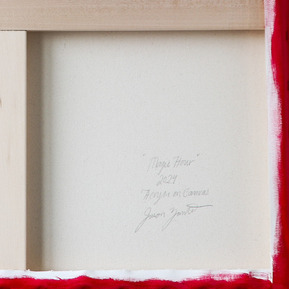 "Magic Hour"
2024
Acrylic on Canvas
Jason